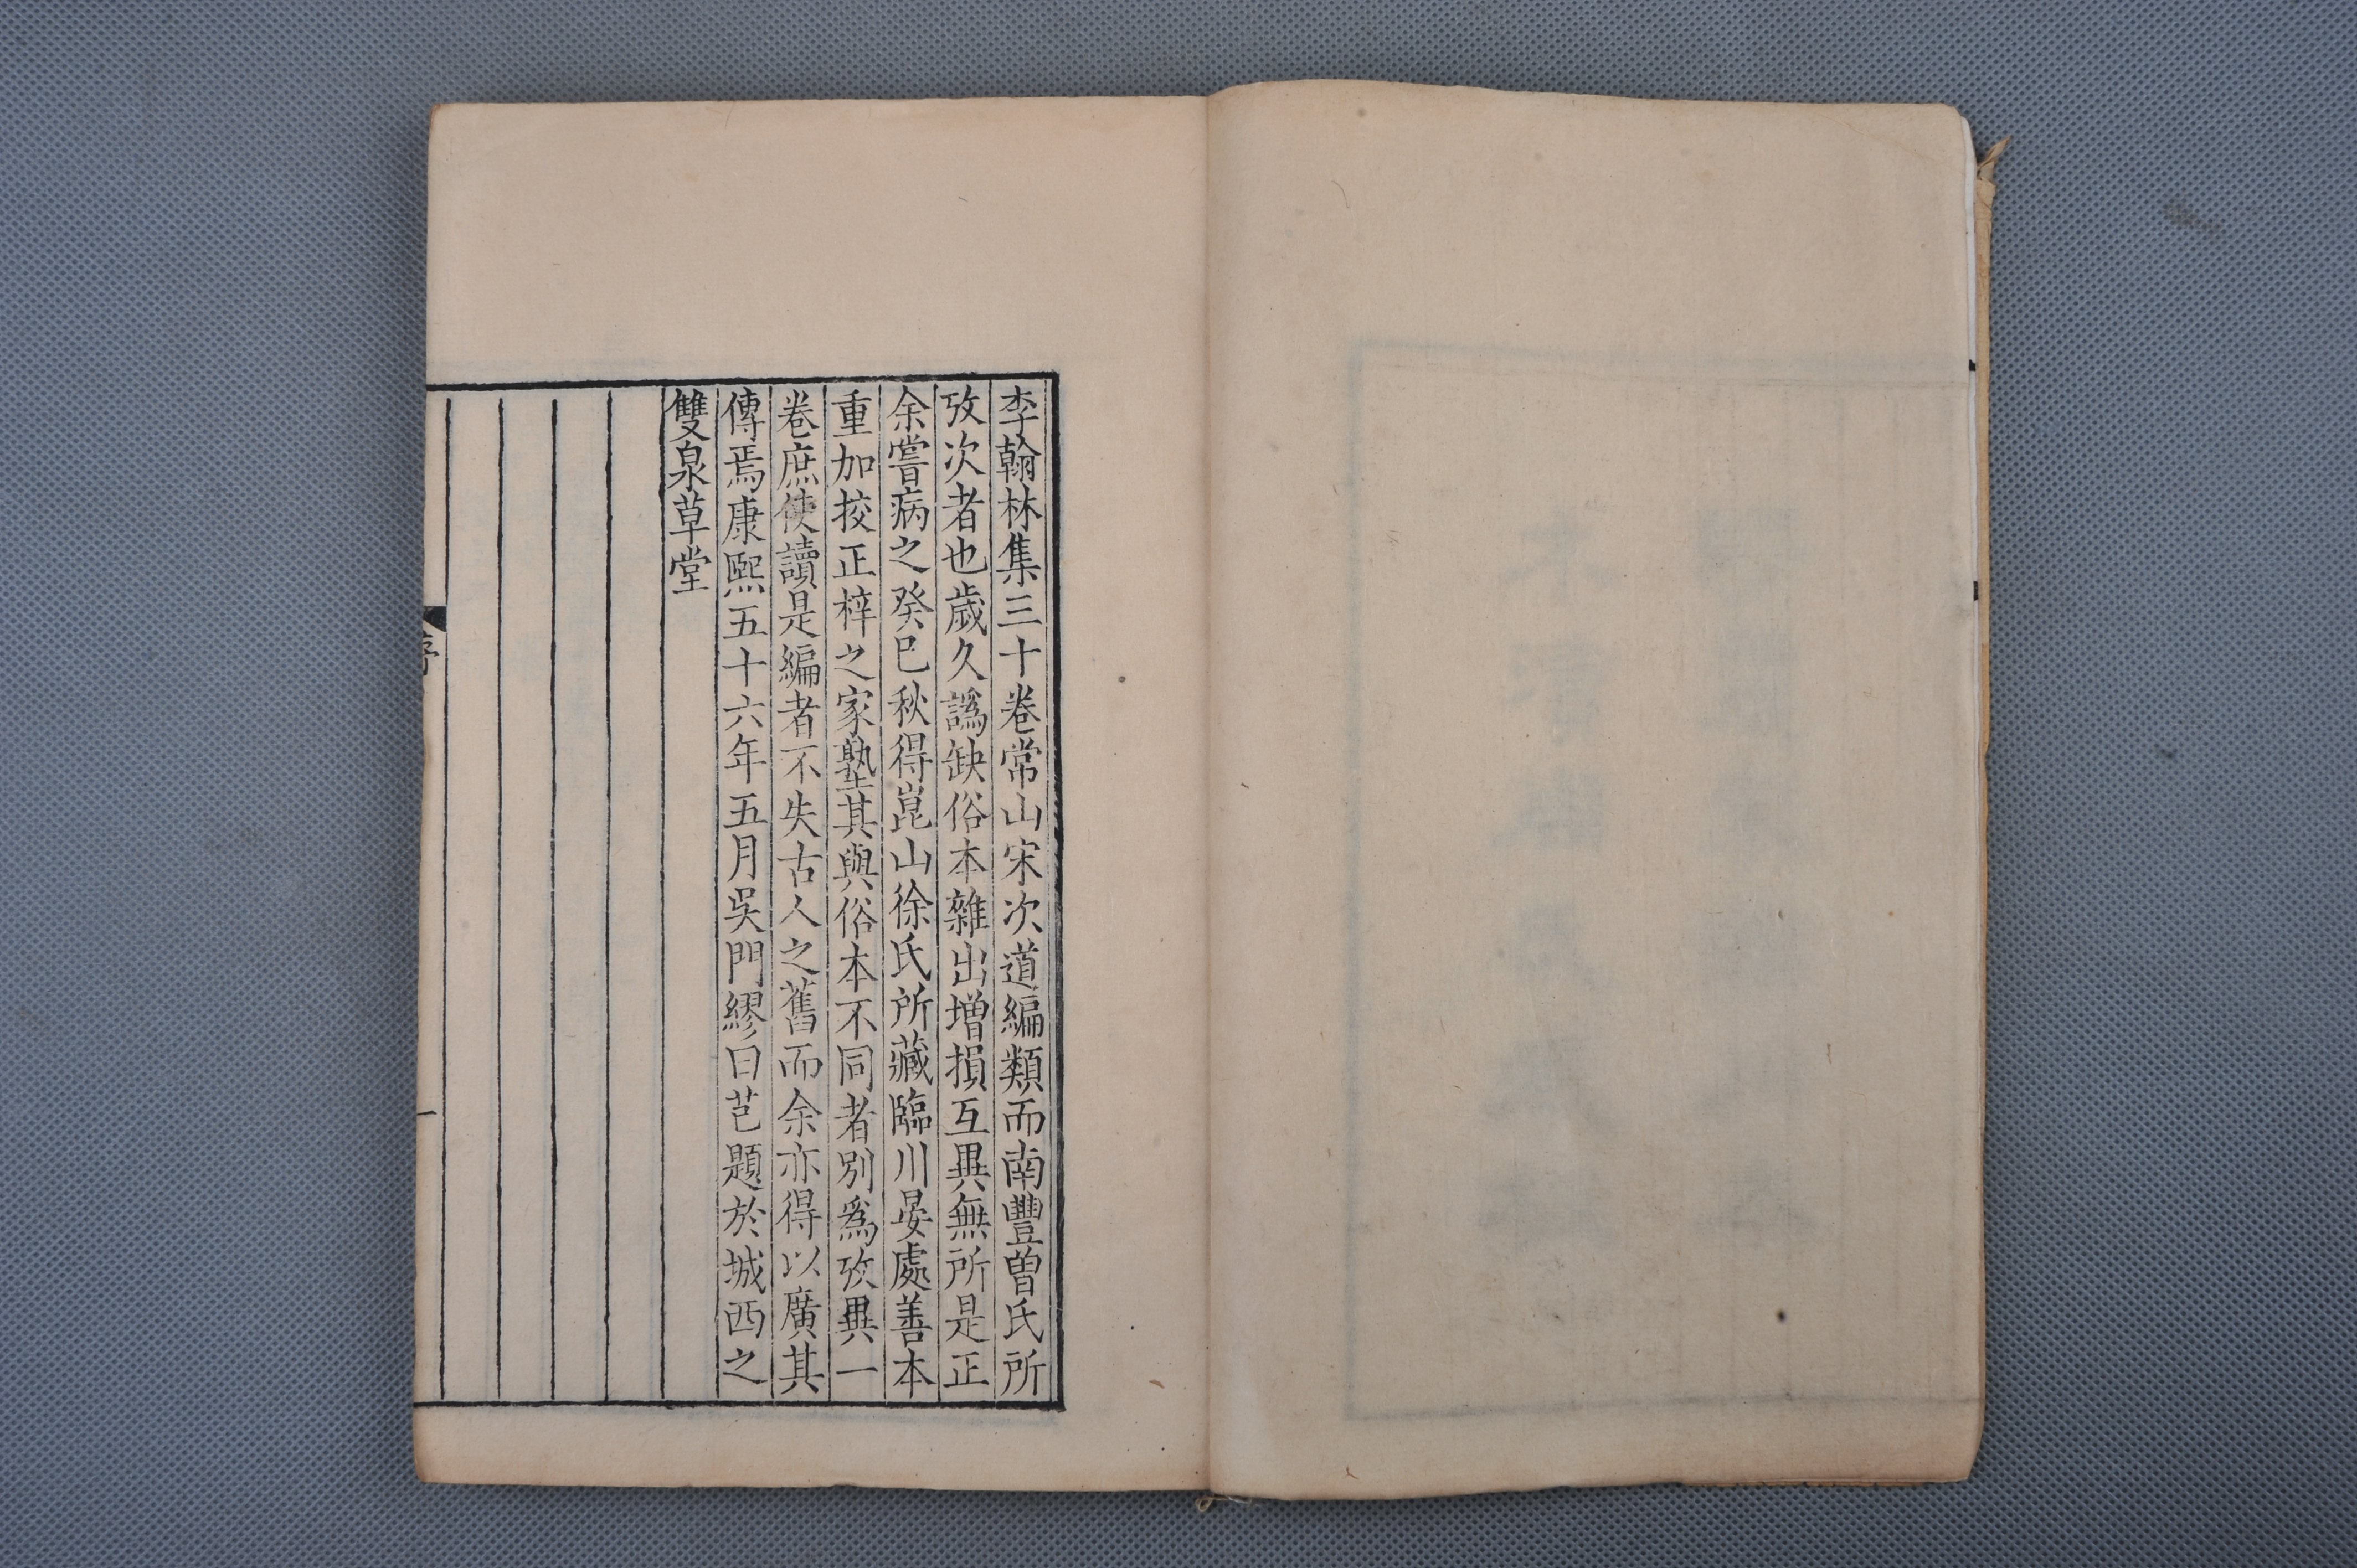 李翰林集三十卷常山宋次道編類而南豐曾氏所
攷次者也歲久譌缺俗本雜出增損互異無所是正
余嘗病之癸巳秋得崑山徐氏所藏臨川晏處善本
重加挍正梓之家塾其與俗本不同者別爲攷異一
卷庶使讀是編者不失古人之舊而余亦得以廣其
傳焉康熙五十六年五月吳門繆曰芑題於城西之
雙泉草堂
序
一